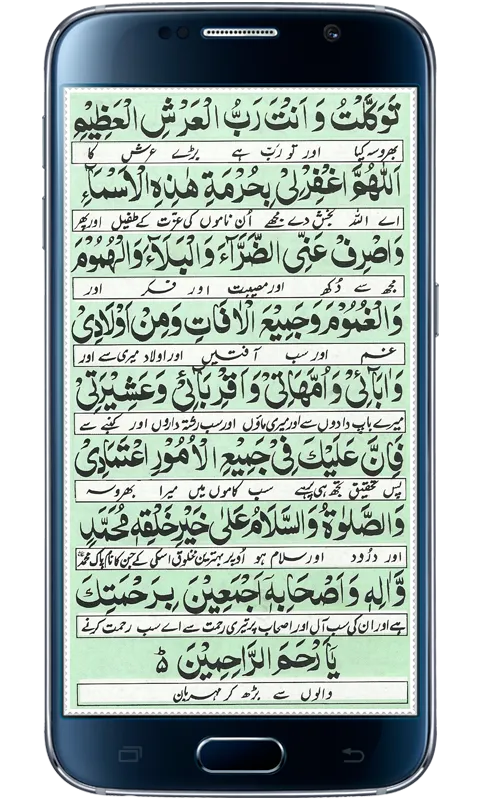 تَوَكَّلْتُ وَاَنْتَ رَبُّ الْعَرْشِ الْعَظِيْمِ
بھروسہ کیا اور تو ربّ ہے بڑے عرش کا
اَللّٰهُمَّ اغْفِرْلِیْ بِحُرْمَةِ هٰذِهِ الْاَسْمَآءِ
اے اللہ بخش دے مجھے اُن ناموں کی عزّت کے طفیل اور پھر
وَاصْرِفْ عَنِّی الضَّرَّآءَ وَالْبَلَآءَ وَالْهُمُوْمَ
مجھ سے دُکھ اور مصیبت اور فکر اور
وَالْغُمُوْمَ وَجَمِيْعَ الْاٰفَاتِ وَمِنْ اَوْلَادِیْ
غم اور سب آفتیں اور اولاد میری سے اور
وَاٰبَآئِیْ وَاُمَّهَاتِیْ وَاَقْرِبَآئِیْ وَعَشِيْرَتِیْ
میرے باپ دادوں سے اور میری ماؤں اور سب رشتہ داروں اور کنبے سے
فَاِنَّ عَلَيْكَ فِیْ جَمِيْعِ الْاُمُوْرِ اعْتِمَادِیْ
پس تحقیق تجھ ہی پہ ہے سب کاموں میں میرا بھروسہ
وَالصَّلٰوةُ وَالسَّلَامُ عَلٰی خَيْرِ خَلْقِهٖ مُحَمَّدٍ
اور درُود اور سلام ہو اُوپر بہترین مخلوق اسکی کے جن کا نام پاک محمدؐ
وَّاٰلِهٖ وَاَصْحَابِهٖ اَجْمَعِيْنَ بِرَحْمَتِكَ
ہے اور ان کی سب آل اور اصحاب پر تیری رحمت سے اے سب رحمت کرنے
يَآ اَرْحَمَ الرَّاحِمِيْنَ ۵
والوں سے بڑھ کر مہربان